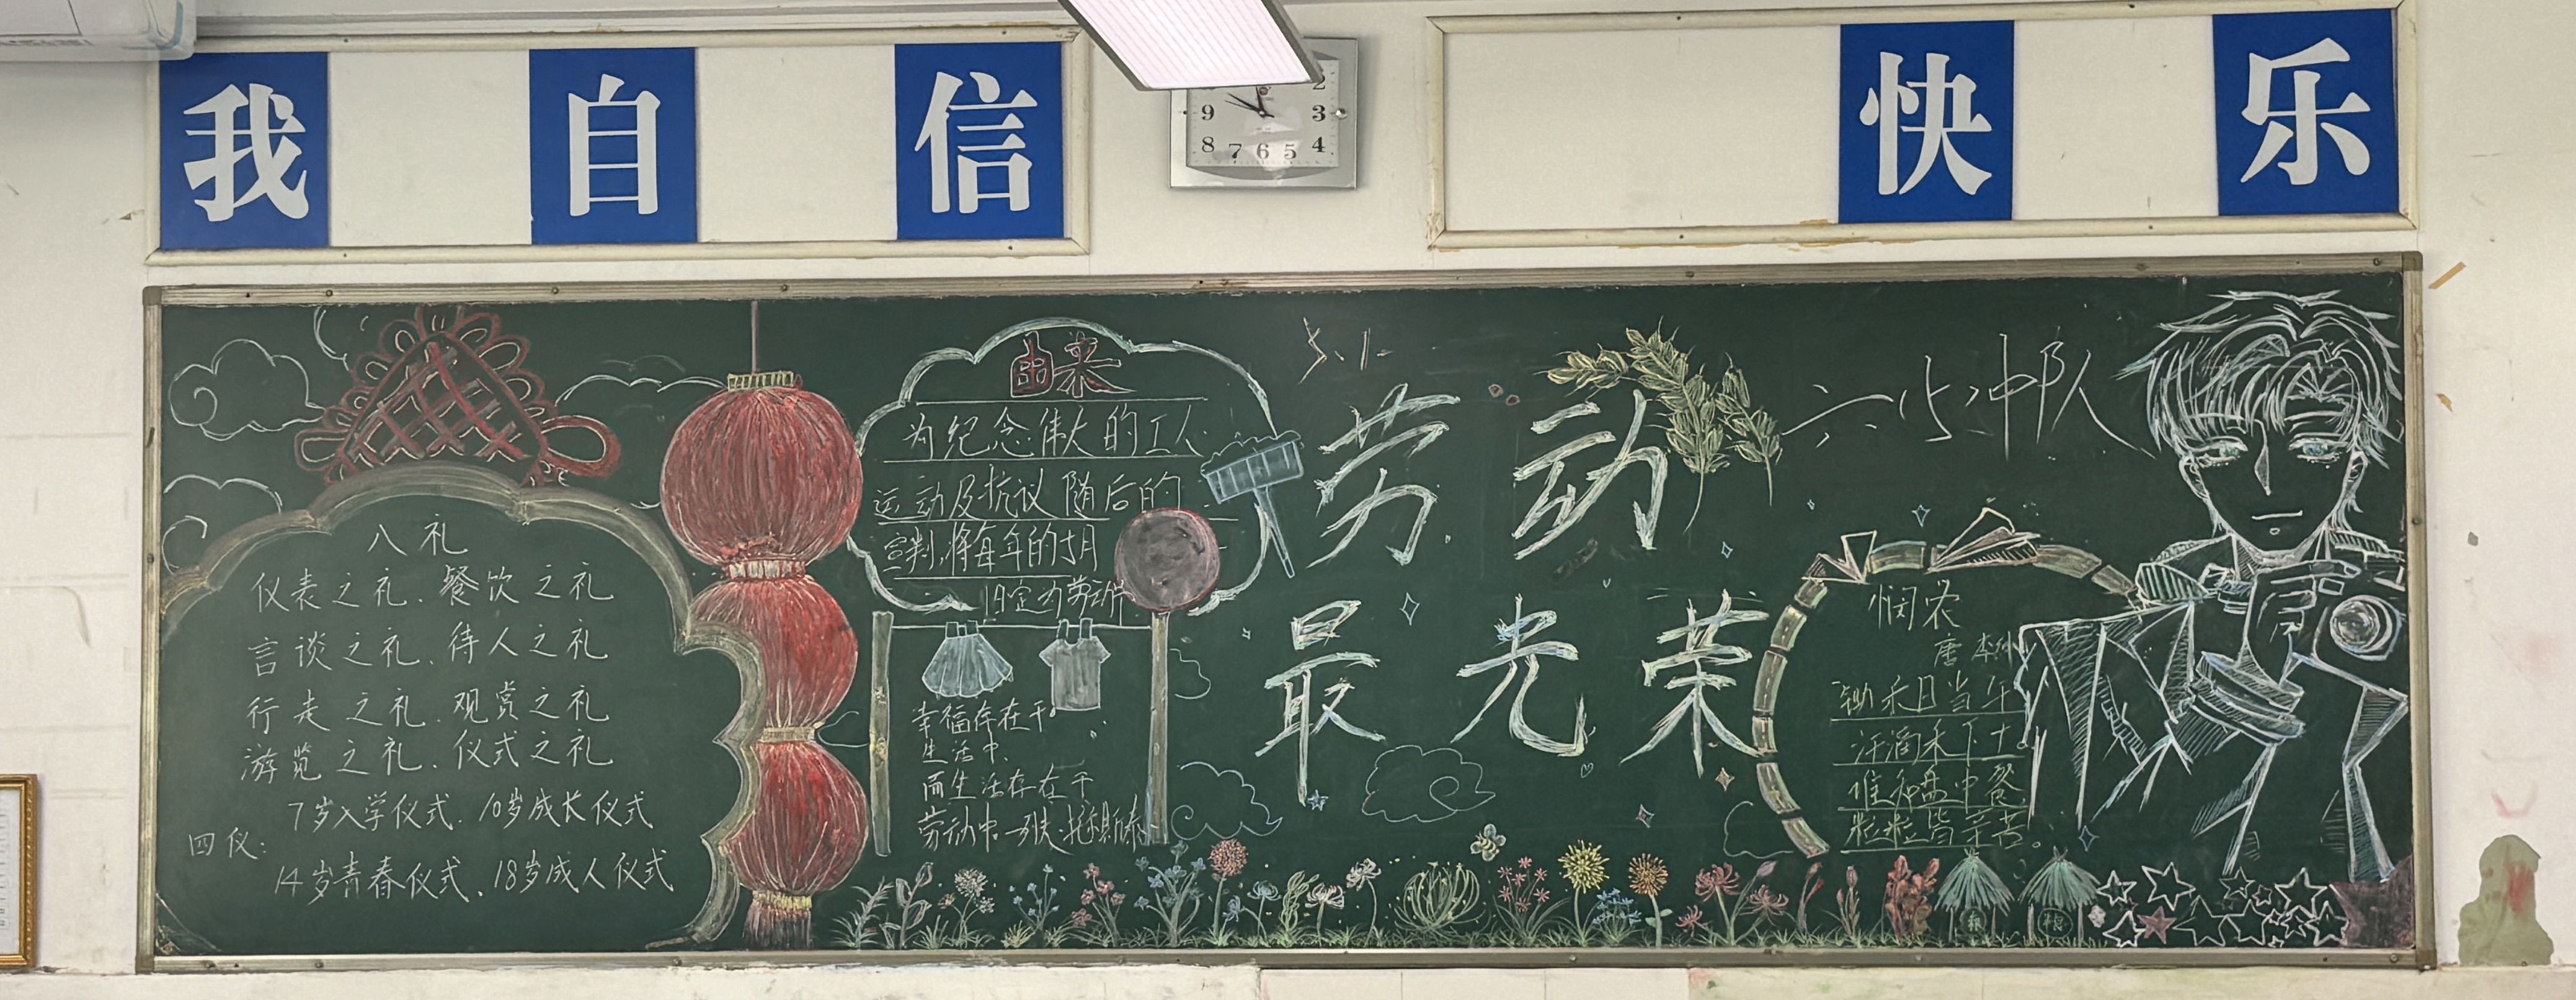 我 自 信
快 乐
2
9 3
8 7 6 5 4
八礼
仪表之礼、餐饮之礼
言谈之礼、待人之礼
行走之礼、观赏之礼
游览之礼、仪式之礼
四仪:
7岁入学仪式、10岁成长仪式
14岁青春仪式、18岁成人仪式
由来
为纪念伟大的工人
运动及抗议随后的
宣判,将每年的5月
1日定为劳动节
幸福存在于
生活中,
而生活存在于
劳动中
5.1
劳动
最光荣
六(5)中队
悯农
唐
锄禾日当午
汗滴禾下土
谁知盘中餐
粒粒皆辛苦
粮 粮